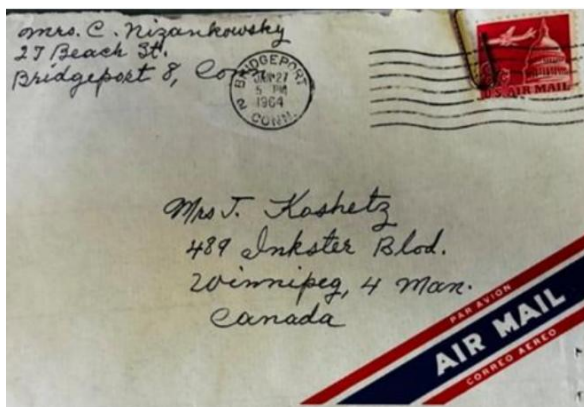 Mrs. C. Nizankowsky
27 Beach St.
Bridgeport 8, Conn.
BRIDGEPORT
27
5 PM
1964
2 CONN.
U.S. AIR MAIL
Mrs T. Koshetz
489 Inkster Blvd.
Winnipeg, 4 Man.
Canada
PAR AVION
AIR MAIL
CORREO AEREO